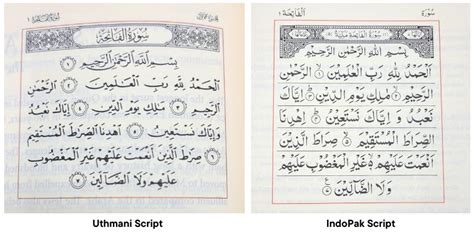 الجزء الأول
سُورَةُ الْفَاتِحَةِ
بِسْمِ ٱللَّهِ ٱلرَّحْمَٰنِ ٱلرَّحِيمِ ١
ٱلْحَمْدُ لِلَّهِ رَبِّ ٱلْعَٰلَمِينَ ٢ ٱلرَّحْمَٰنِ
ٱلرَّحِيمِ ٣ مَٰلِكِ يَوْمِ ٱلدِّينِ ٤ إِيَّاكَ نَعْبُدُ
وَإِيَّاكَ نَسْتَعِينُ ٥ ٱهْدِنَا ٱلصِّرَٰطَ ٱلْمُسْتَقِيمَ
٦ صِرَٰطَ ٱلَّذِينَ أَنْعَمْتَ عَلَيْهِمْ غَيْرِ ٱلْمَغْضُوبِ
عَلَيْهِمْ وَلَا ٱلضَّآلِّينَ ٧
Uthmani Script
سورة الفاتحة ١
سُوْرَةُ الْفَاتِحَةِ مَكِّيَّةٌ
بِسْمِ اللهِ الرَّحْمٰنِ الرَّحِيْمِ
اَلْحَمْدُ لِلّٰهِ رَبِّ الْعٰلَمِيْنَ الرَّحْمٰنِ
الرَّحِيْمِ مٰلِكِ يَوْمِ الدِّيْنِ اِيَّاكَ
نَعْبُدُ وَاِيَّاكَ نَسْتَعِيْنُ اِهْدِنَا
الصِّرَاطَ الْمُسْتَقِيْمَ صِرَاطَ الَّذِيْنَ
اَنْعَمْتَ عَلَيْهِمْ غَيْرِ الْمَغْضُوْبِ عَلَيْهِمْ
وَلَا الضَّآلِّيْنَ
IndoPak Script